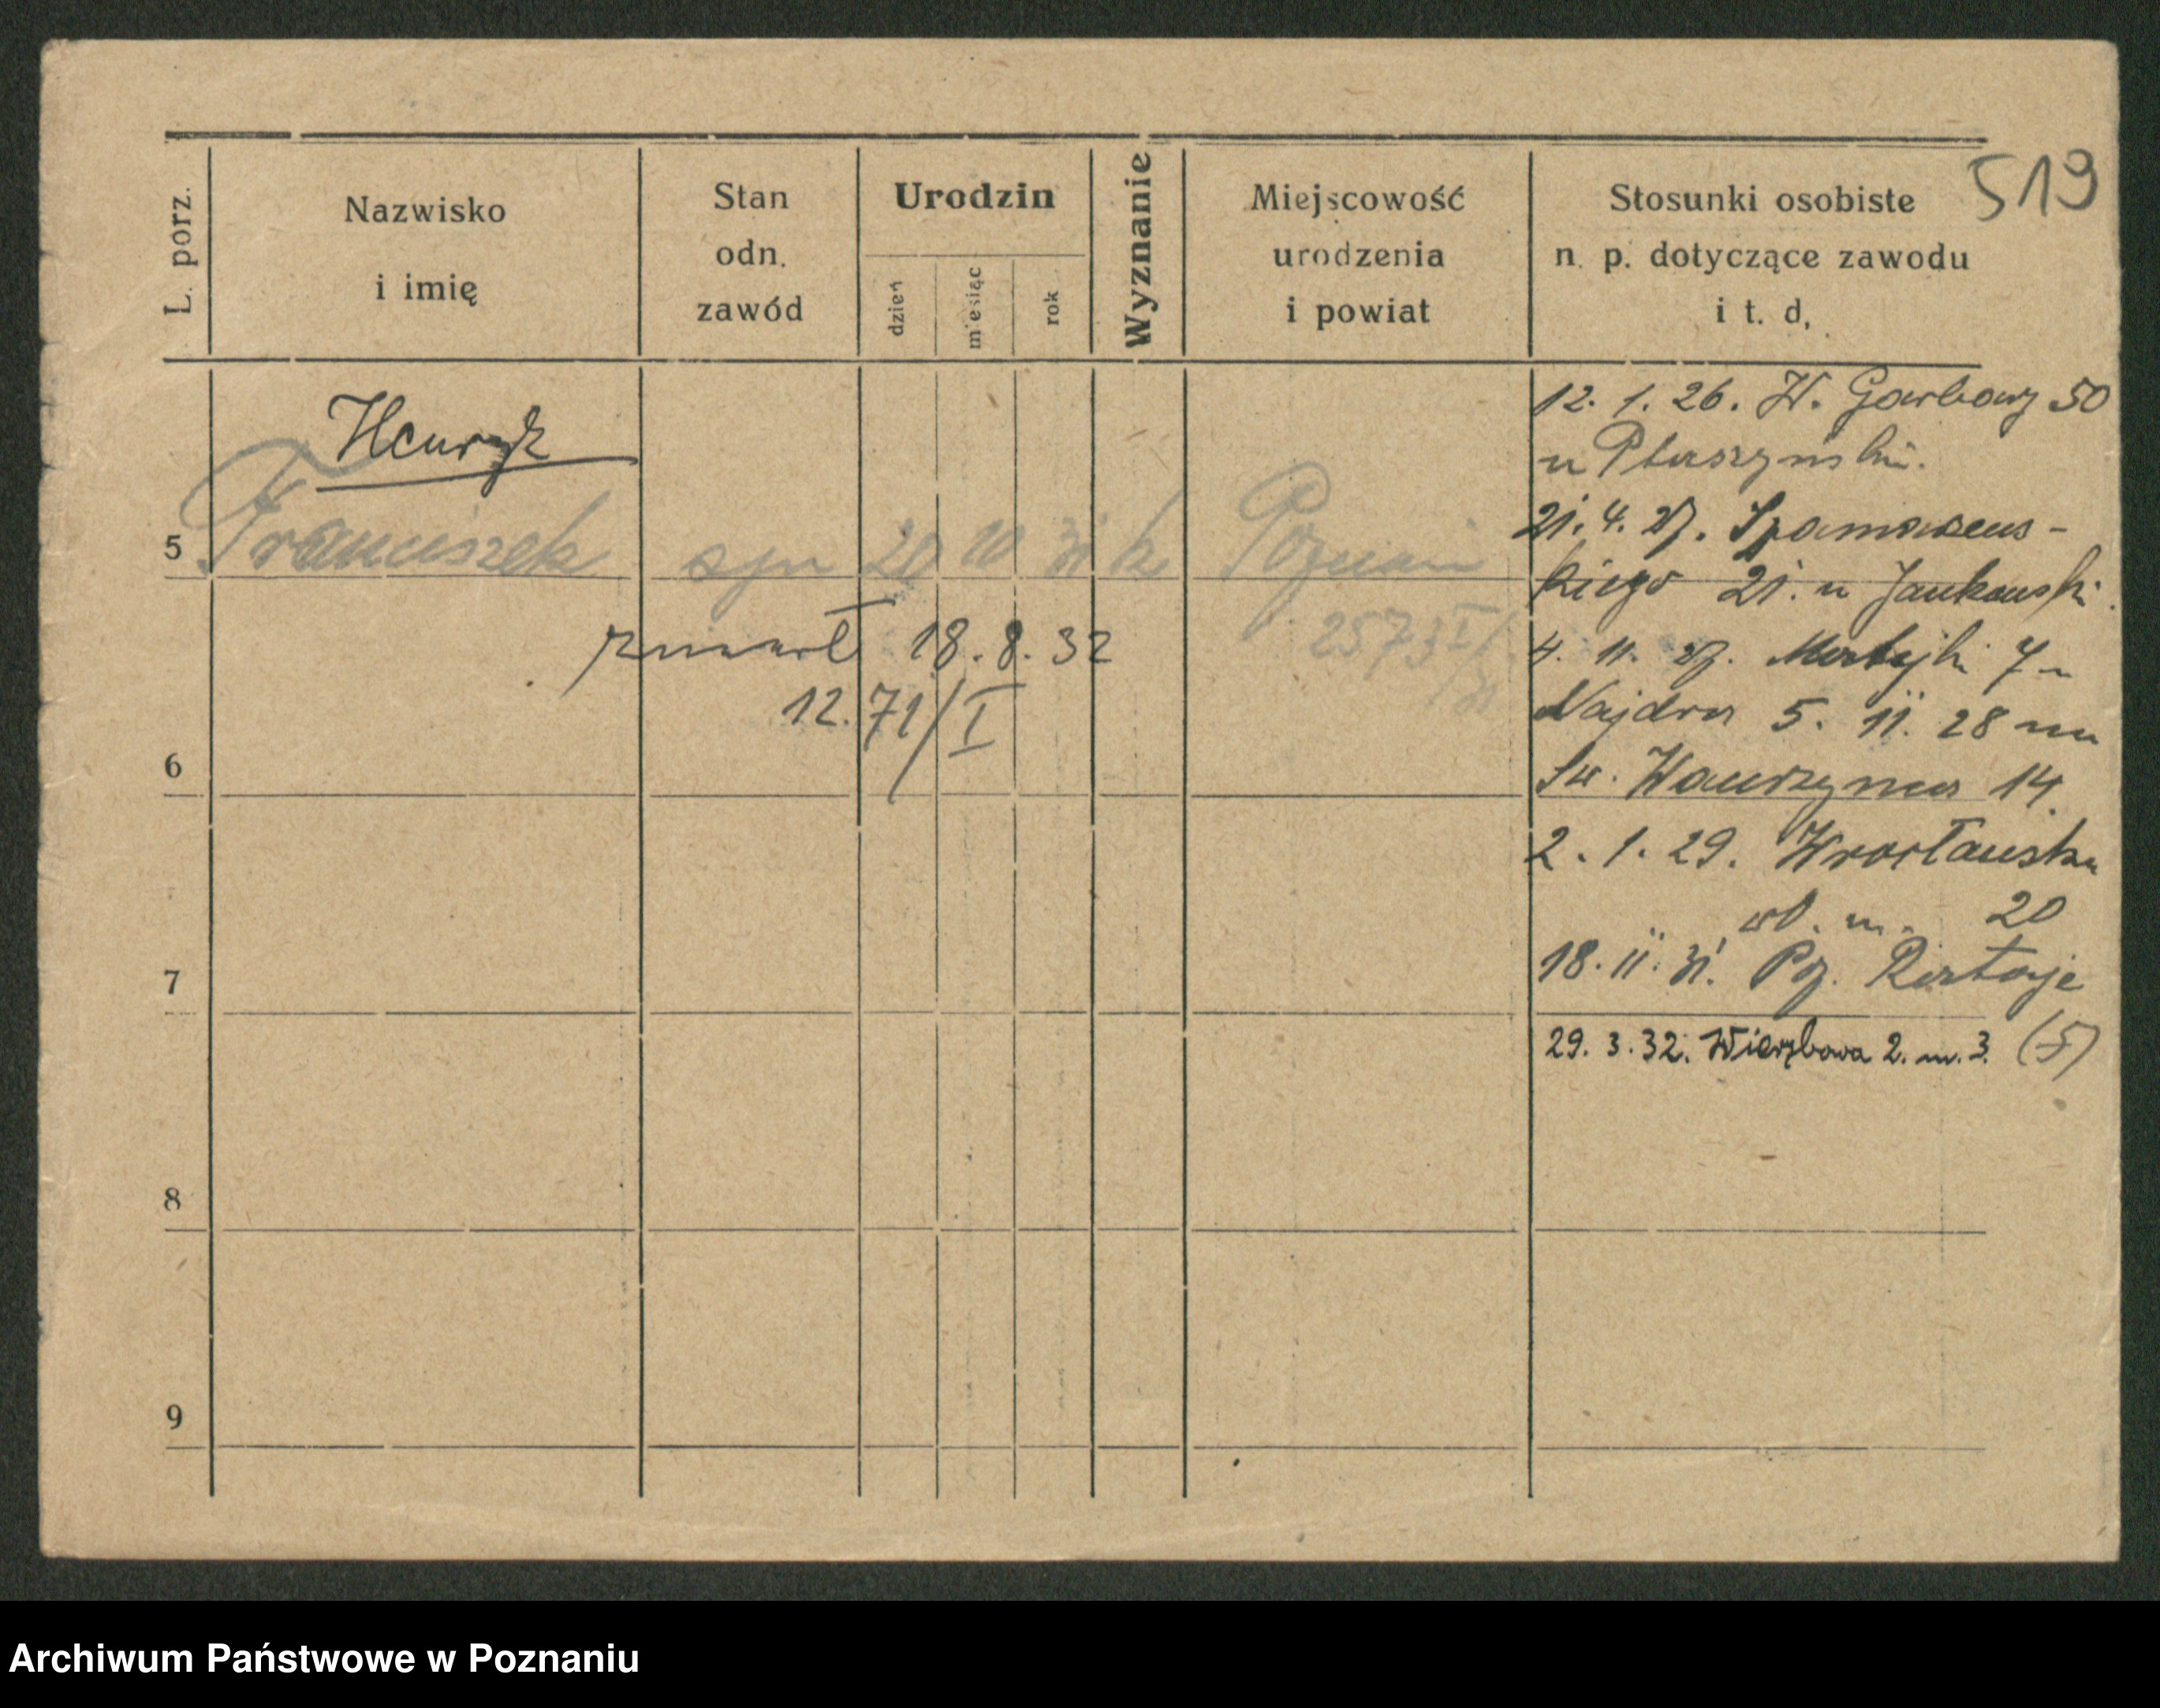 519
L. porz.
Nazwisko
i imię
Stan
odn.
zawód
Urodzin
dzień
miesiąc
rok
Wyznanie
Miejscowość
urodzenia
i powiat
Stosunki osobiste
n. p. dotyczące zawodu
i t. d.
Henryk
5 Franciszek syn 20 10 31 k Poznań
2573 I/
31
zmarł 18. 8. 32
12.71/I
6
7
8
9
12. 1. 26. W. Garbary 50
u Ptaszyński.
21. 4. 27.
kiego 21. u Jankowski.
4. 11. 27. Matejki 7 u
Najdra 5. 11. 28 na
Św. Wawrzyńca 14.
2. 1. 29. Wrocławska
wł. m. 20
18. 11. 31. Pz. Rataje
29. 3. 32. Wierzbowa 2. m. 3. (5)
Archiwum Państwowe w Poznaniu